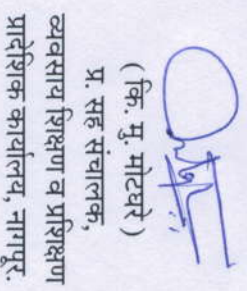 ( कि. मु. मोटघरे )
प्र. सह संचालक,
व्यवसाय शिक्षण व प्रशिक्षण
प्रादेशिक कार्यालय, नागपूर.